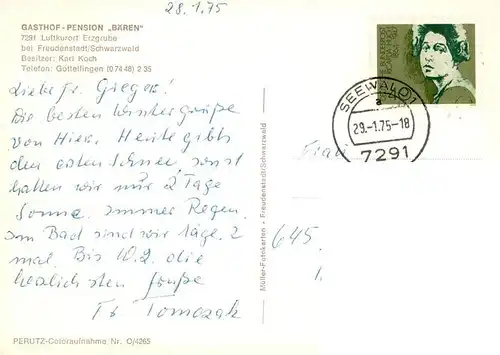 28.1.75
GASTHOF - PENSION „BÄREN"
7291 Luftkurort Erzgrube
bei Freudenstadt/Schwarzwald
Besitzer: Karl Koch
Telefon: Göttelfingen (0 74 48) 2 35
Liebe Fr. Gieger!
Die besten Wintergrüße
von Hier. Heute gibts
den ersten Schnee sonst
hatten wir nur 2 Tage
Sonne. immer Regen.
Im Bad sind wir tägl. 2
mal. Bis 10.2. die
herzlichsten Grüße
Fr Tomczak
PERUTZ-Coloraufnahme Nr. O/4265
Müller-Fotokarten · Freudenstadt/Schwarzwald
DEUTSCHE BUNDESPOST
SEEWALD 1
a
29.-1.75-18
7291
Frau
645
1.